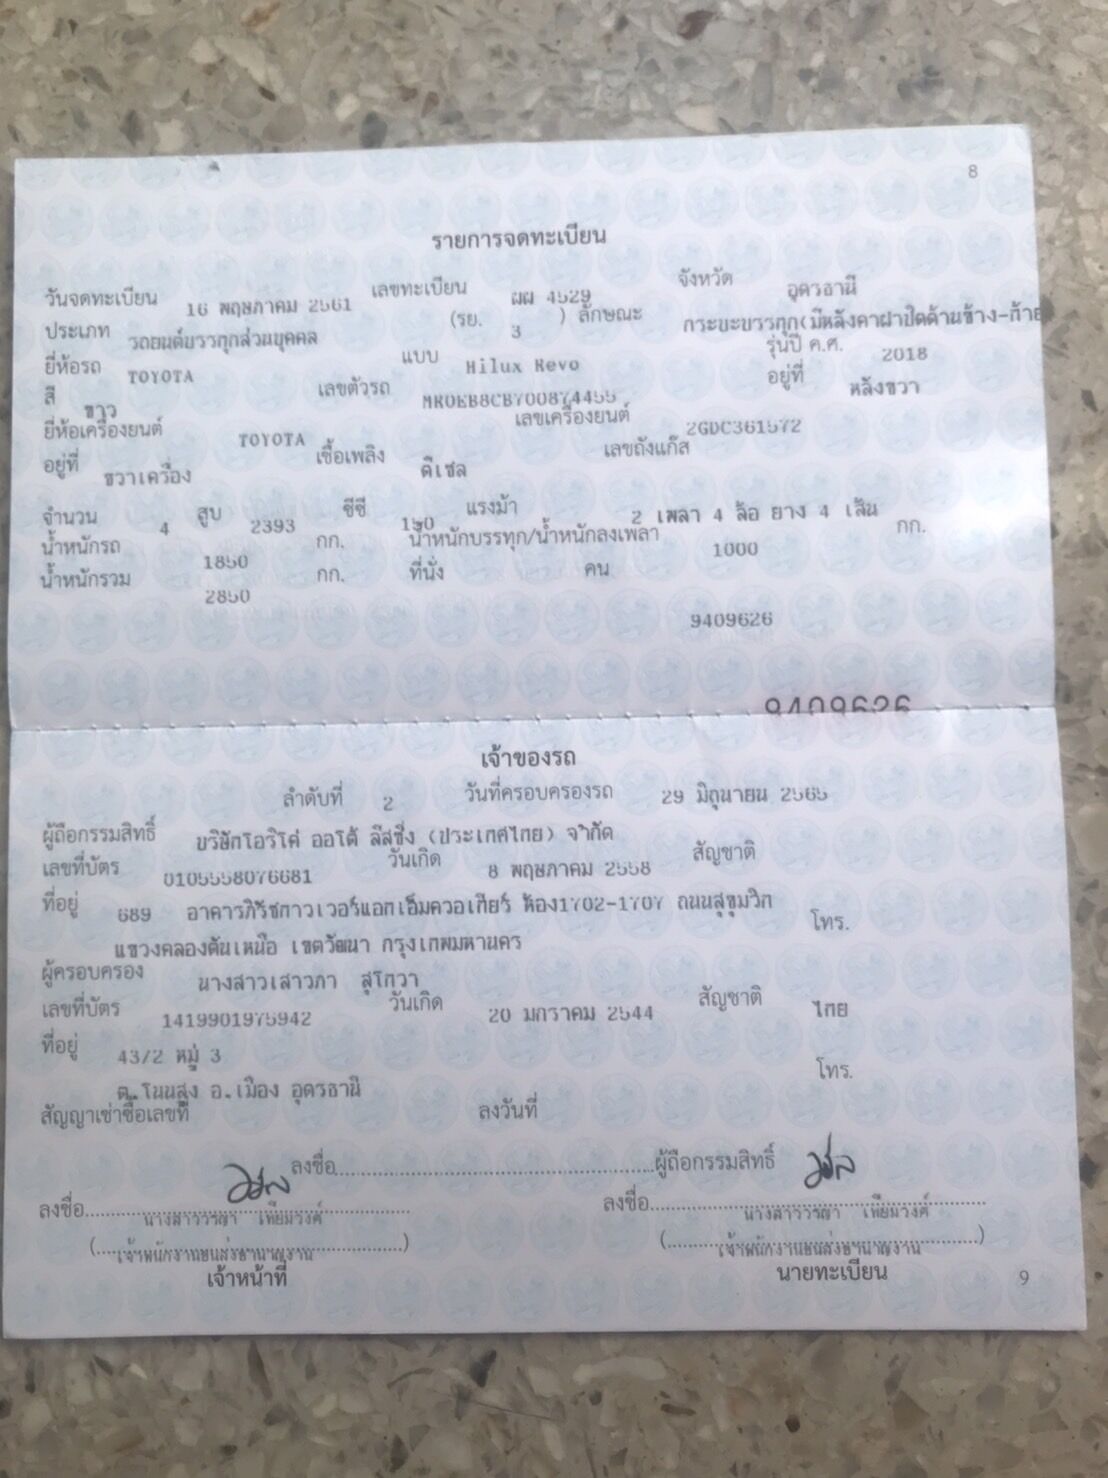 8
รายการจดทะเบียน
วันจดทะเบียน 16 พฤษภาคม 2561 เลขทะเบียน ผผ 4529 จังหวัด อุดรธานี
ประเภท รถยนต์บรรทุกส่วนบุคคล (รย. 3 ) ลักษณะ กระบะบรรทุก(มีหลังคาฝาปิดด้านข้าง-ท้าย
ยี่ห้อรถ TOYOTA แบบ Hilux Revo รุ่นปี ค.ศ. 2018
สี ขาว เลขตัวรถ MR0EB8CB700874455 อยู่ที่ หลังขวา
ยี่ห้อเครื่องยนต์ TOYOTA เลขเครื่องยนต์ 2GDC361572
อยู่ที่ ขวาเครื่อง เชื้อเพลิง ดีเซล เลขถังแก๊ส
จำนวน 4 สูบ 2393 ซีซี 150 แรงม้า 2 เพลา 4 ล้อ ยาง 4 เส้น
น้ำหนักรถ 1850 กก. น้ำหนักบรรทุก/น้ำหนักลงเพลา 1000 กก.
น้ำหนักรวม 2850 กก. ที่นั่ง คน
9409626
9409626
เจ้าของรถ
ลำดับที่ 2 วันที่ครอบครองรถ 29 มิถุนายน 2565
ผู้ถือกรรมสิทธิ์ บริษัทโอริโค่ ออโต้ ลีสซิ่ง (ประเทศไทย) จำกัด
เลขที่บัตร 0105558076681 วันเกิด 8 พฤษภาคม 2558 สัญชาติ
ที่อยู่ 689 อาคารภิรัชทาวเวอร์แอทเอ็มควอเทียร์ ห้อง1702-1707 ถนนสุขุมวิท โทร.
แขวงคลองตันเหนือ เขตวัฒนา กรุงเทพมหานคร
ผู้ครอบครอง นางสาวเสาวภา สุโทวา
เลขที่บัตร 1419901975942 วันเกิด 20 มกราคม 2544 สัญชาติ ไทย
ที่อยู่ 43/2 หมู่ 3 โทร.
ต.โนนสูง อ.เมือง อุดรธานี
สัญญาเช่าซื้อเลขที่ ลงวันที่
ลงชื่อ ผู้ถือกรรมสิทธิ์
ลงชื่อ ลงชื่อ
นางสาววรญา เทียมวงศ์ นางสาววรญา เทียมวงศ์
(เจ้าพนักงานขนส่งชำนาญงาน) (เจ้าพนักงานขนส่งชำนาญงาน)
เจ้าหน้าที่ นายทะเบียน
9